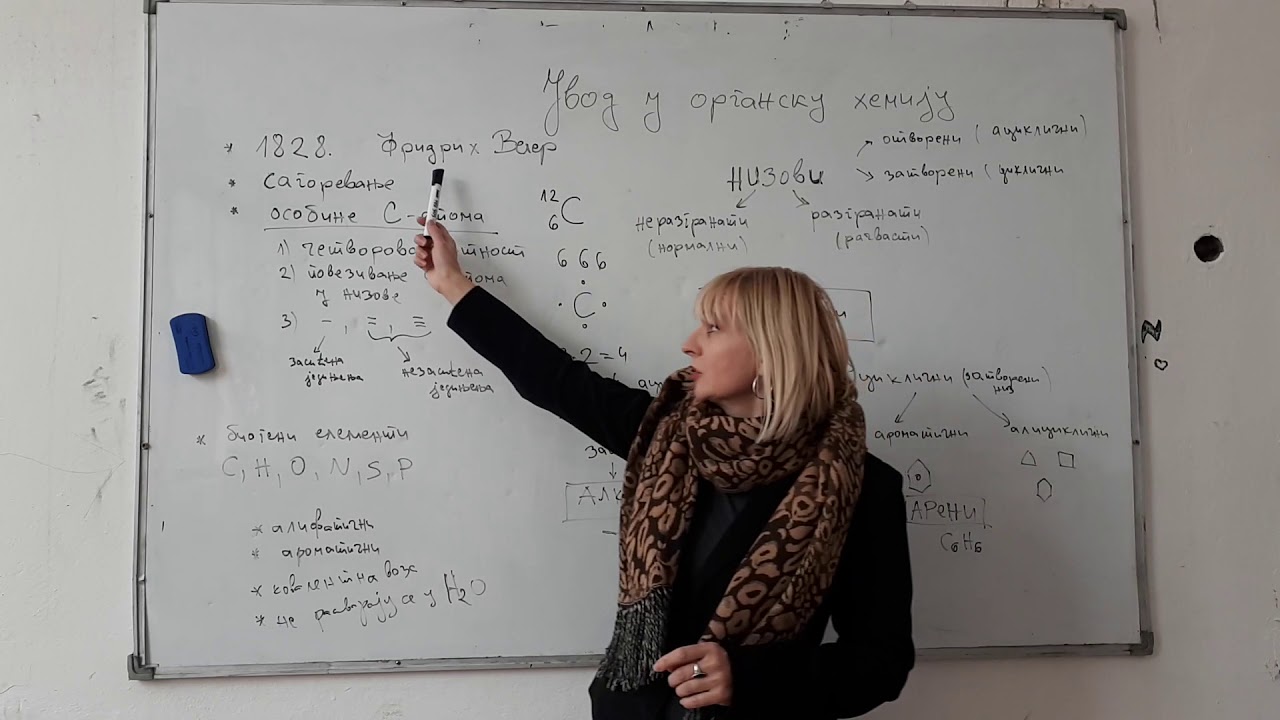 Увод у органску хемију
* 1828. Фридрих Велер
* сагоревање
* особине С-атома
1) четворовалентност
2) повезивање атома
у низове
3) -, =, ≡
засићена
једињења
незасићена
једињења
* биогени елементи
C, H, O, N, S, P
* алифатични
* ароматични
* ковалентна веза
* не растварају се у H2O
12
6 C
6 6 6
C
2 = 4
низови
отворени (ациклични)
затворени (циклични
неразгранати
(нормални)
разгранати
(рачвасти)
циклични (затворени
низ)
ароматични
алициклични
АРЕНИ
C6H6